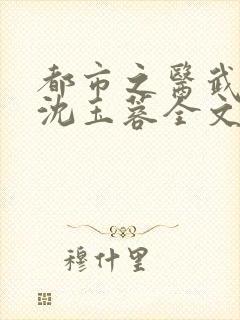 都市之醫武
沈玉蓉全文
穆什里